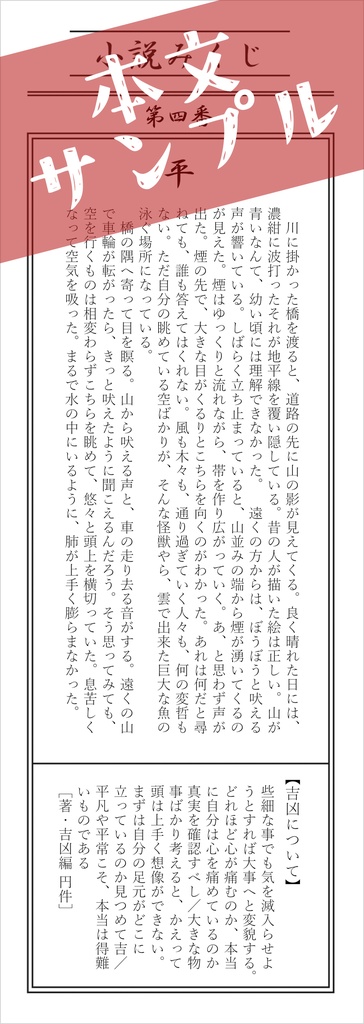 小説みくじ
本文
サンプル
第四番
平
　川に掛かった橋を渡ると、道路の先に山の影が見えてくる。良く晴れた日には、
濃紺に波打ったそれが地平線を覆い隠している。昔の人が描いた絵は正しい。山が
青いなんて、幼い頃には理解できなかった。　遠くの方からは、ぼうぼうと吠える
声が響いている。しばらく立ち止まっていると、山並みの端から煙が湧いてくるの
が見えた。煙はゆっくりと流れながら、帯を作り広がっていく。あ、と思わず声が
出た。煙の先で、大きな目がくるりとこちらを向くのがわかった。あれは何だと尋
ねても、誰も答えてはくれない。風も木々も、通り過ぎていく人々も、何の変哲も
ない。ただ自分の眺めている空ばかりが、そんな怪獣やら、雲で出来た巨大な魚の
泳ぐ場所になっている。
　橋の隅へ寄って目を瞑る。山から吠える声と、車の走り去る音がする。遠くの山
で車輪が転がったら、きっと吠えたように聞こえるんだろう。そう思ってみても、
空を行くものは相変わらずこちらを眺めて、悠々と頭上を横切っていた。息苦しく
なって空気を吸った。まるで水の中にいるように、肺が上手く膨らまなかった。
【吉凶について】
些細な事でも気を滅入らせよ
うとすれば大事へと変貌する。
どれほど心が痛むのか、本当
に自分は心を痛めているのか
真実を確認すべし／大きな物
事ばかり考えると、かえって
頭は上手く想像ができない。
まずは自分の足元がどこに
立っているのか見つめて吉／
平凡や平常こそ、本当は得難
いものである
［著・吉凶編 円件］